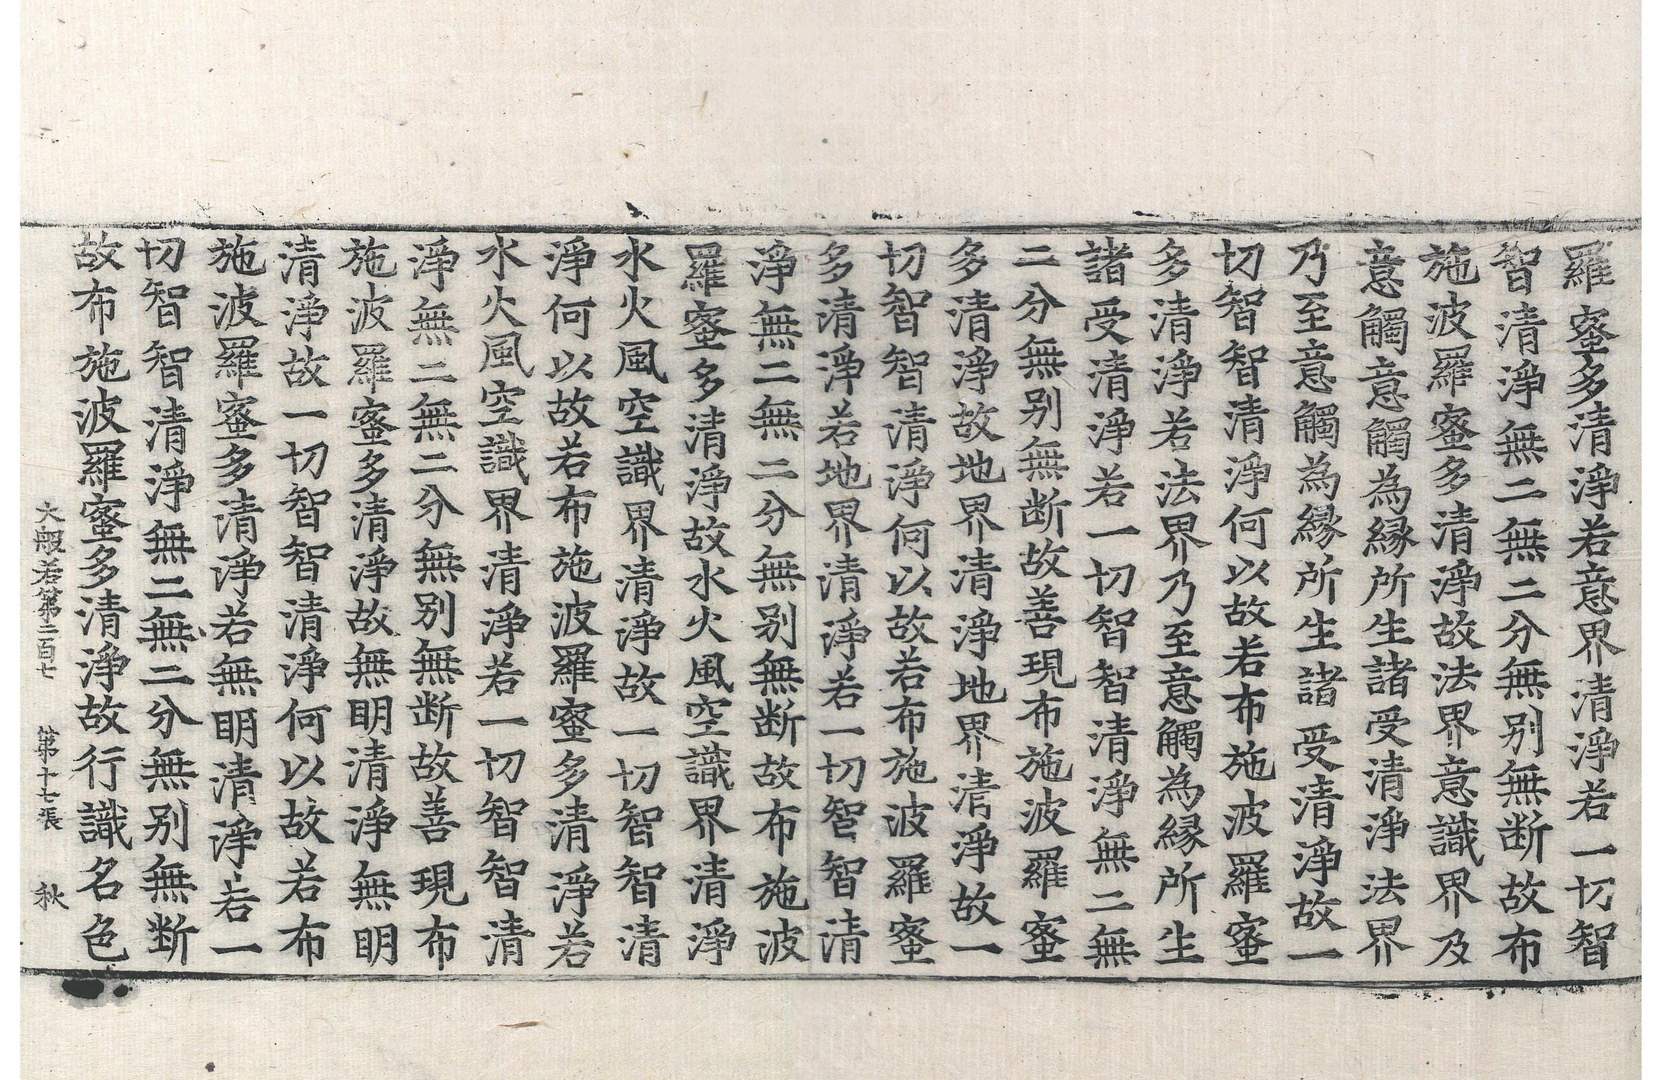 羅蜜多清淨若意界清淨若一切智
智清淨無二無二分無別無断故布
施波羅蜜多清淨故法界意識界及
意觸意觸為緣所生諸受清淨法界
乃至意觸為緣所生諸受清淨故一
切智智清淨何以故若布施波羅蜜
多清淨若法界乃至意觸為緣所生
諸受清淨若一切智智清淨無二無
二分無別無断故善現布施波羅蜜
多清淨故地界清淨地界清淨故一
切智智清淨何以故若布施波羅蜜
多清淨若地界清淨若一切智智清
淨無二無二分無別無断故布施波
羅蜜多清淨故水火風空識界清淨
水火風空識界清淨故一切智智清
淨何以故若布施波羅蜜多清淨若
水火風空識界清淨若一切智智清
淨無二無二分無別無断故善現布
施波羅蜜多清淨故無明清淨無明
清淨故一切智智清淨何以故若布
施波羅蜜多清淨若無明清淨若一
切智智清淨無二無二分無別無断
故布施波羅蜜多清淨故行識名色
大般若第二百七 第十七張 秋